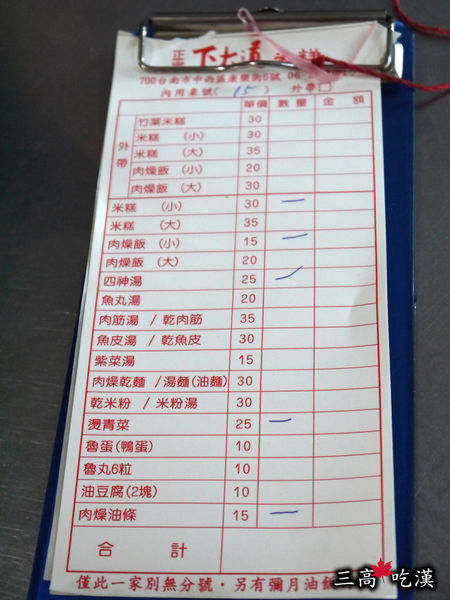 正
下大道
700台南市中西區康樂街6號 06-2
內用桌號( 15 ) 外帶□
單價 數量 金額
外帶
竹葉米糕 30
米糕 (小) 30
米糕 (大) 35
肉燥飯 (小) 20
肉燥飯 (大) 30
米糕 (小) 30 一
米糕 (大) 35
肉燥飯 (小) 15 一
肉燥飯 (大) 20
四神湯 25 一
魚丸湯 20
肉筋湯 / 乾肉筋 35
魚皮湯 / 乾魚皮 30
紫菜湯 15
肉燥乾麵 /湯麵(油麵) 30
乾米粉 / 米粉湯 30
燙青菜 25 一
魯蛋(鴨蛋) 10
魯丸6粒 10
油豆腐(2塊) 10
肉燥油條 15 一
合計
僅此一家別無分號·另有彌月油飯
三高吃漢